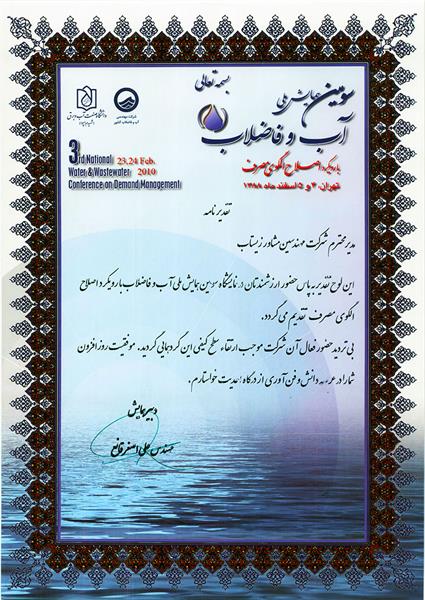 بسمه تعالی
سومین همایش ملی
آب و فاضلاب
با رویکرد اصلاح الگوی مصرف
تهران، ۴ و ۵ اسفند ماه ۱۳۸۸
شرکت مهندسی
آب و فاضلاب کشور
دانشگاه صنعت آب و برق
3rd National
23,24 Feb.
Water & Wastewater 2010
Conference on Demand Management
تقدیرنامه
مدیر محترم شرکت مهندسین مشاور زیستاب
این لوح تقدیر به پاس حضور ارزشمندتان در نمایشگاه سومین همایش ملی آب و فاضلاب با رویکرد اصلاح
الگوی مصرف تقدیم می گردد.
بی تردید حضور فعال آن شرکت موجب ارتقاء سطح کیفی این گردهمایی گردید. موفقیت روز افزون
شما را در عرصه دانش و فن آوری از درگاه احدیت خواستارم.
دبیر همایش
مهندس علی اصغر قانع